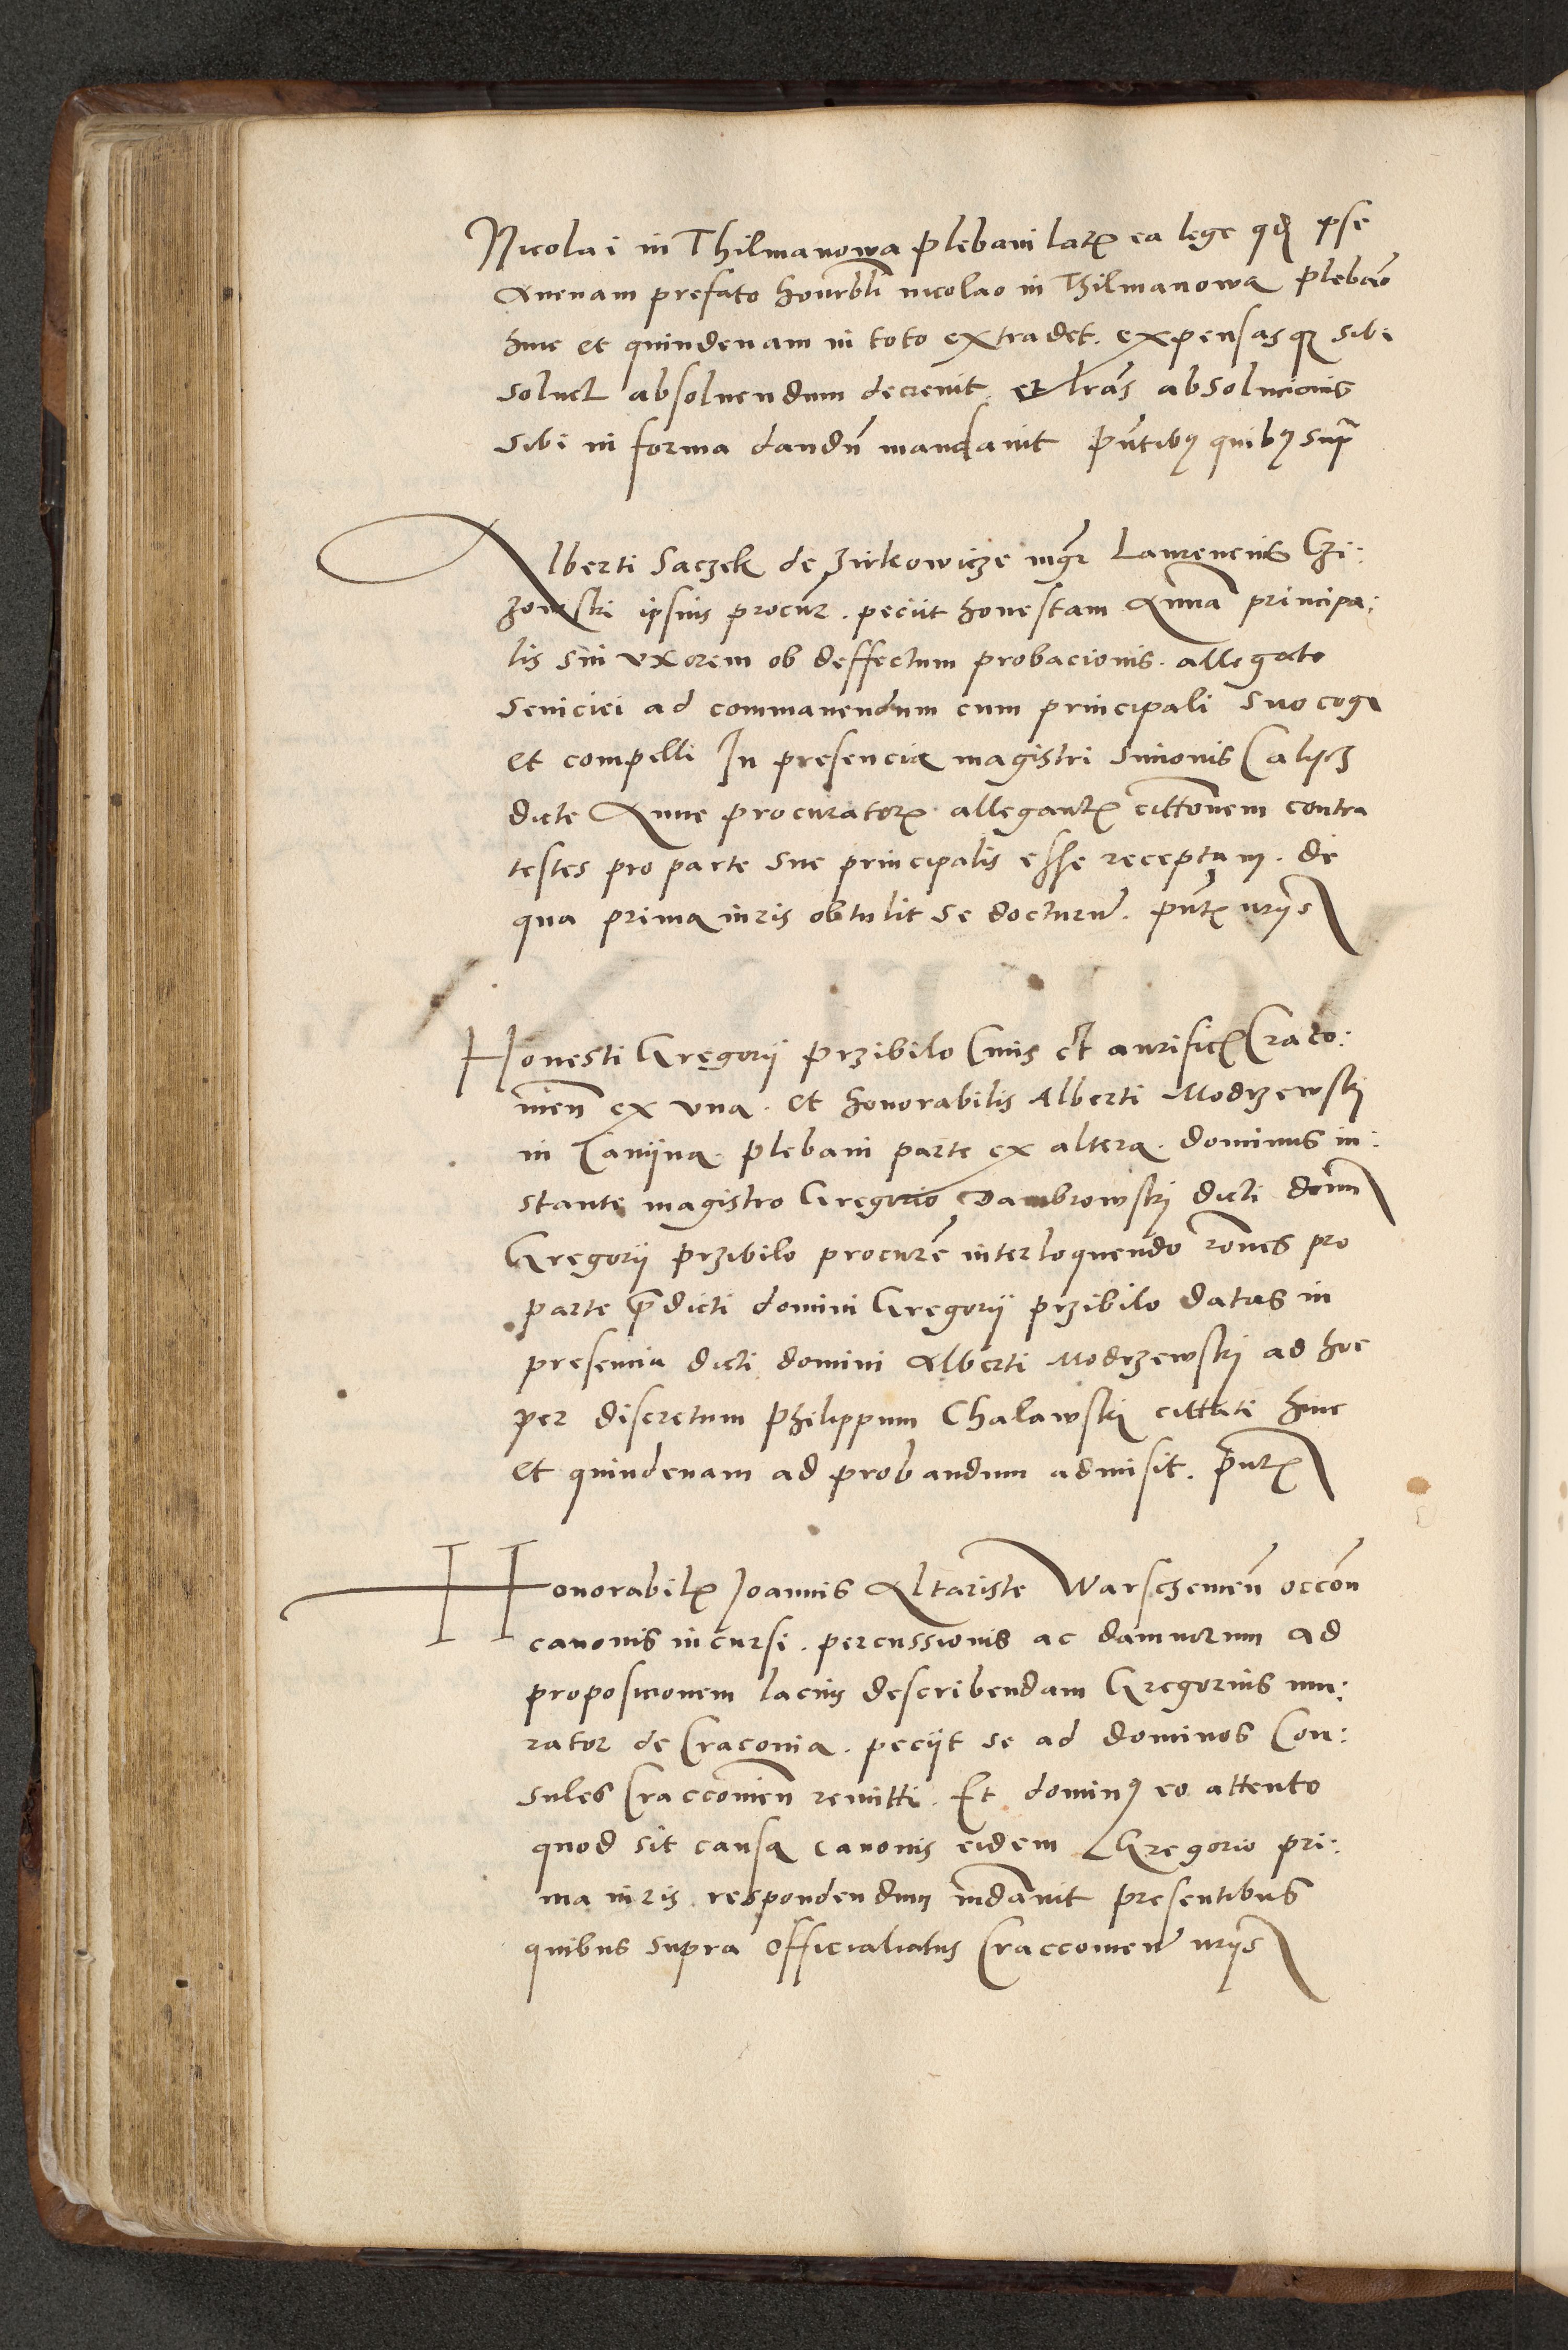 Nicolai in Thilmanowa plebani latis ea lege qd pse
Auenam prefato honrbli nicolao in Thilmanowa plebano
hinc et quindenam in toto extradet. expensasq3 sibi
soluet absoluendum decreuit et lras absolucionis
sibi in forma dandn mandauit pntibus quibus supra
Alberti Saczek de Zirkowicze mgr Laurencius Gzi:
zowski ipsius procur. peciit honestam Anna principa:
lis sui vxorem ob deffectum probacionis. allegate
seuiciei ad commanendum cum principali suo cogi
et compelli In presencia magistri Simonis
dicte Anne procuratoris allegantis cittonem contra
testes pro parte sue principalis esse receptam. de
qua prima iuris obtulit se docturum. pntis
Honesti Gregorii Przibilo Ciuis et aurificis Craco:
uien ex vna. et honorabilis Alberti Modrzewski
in plebani parte ex altera. dominus in:
stante magistro Gregorio Dambrowski dicti domi
Gregorii przibilo procure interloquendo rones pro
parte predicti domini Gregorii przibilo datas in
presencia dicti domini Alberti Modrzewski ad hoc
per discretum philippum Chalawski cittati hinc
et quindenam ad probandum admisit. pntis
Honorabilis Joannis Altariste Warschemen occon
canonis incursi. percussionis ac damnorum ad
proposicionem lacius describendam Gregorius mu:
rator de Cracouia. peciit se ad dominos Con:
sules Craccouien remitti. Et dominus eo attento
quod sit causa canonis eidem Gregorio pri:
ma iuris respondendum mdauit presentibus
quibus supra officialatus Craccouien